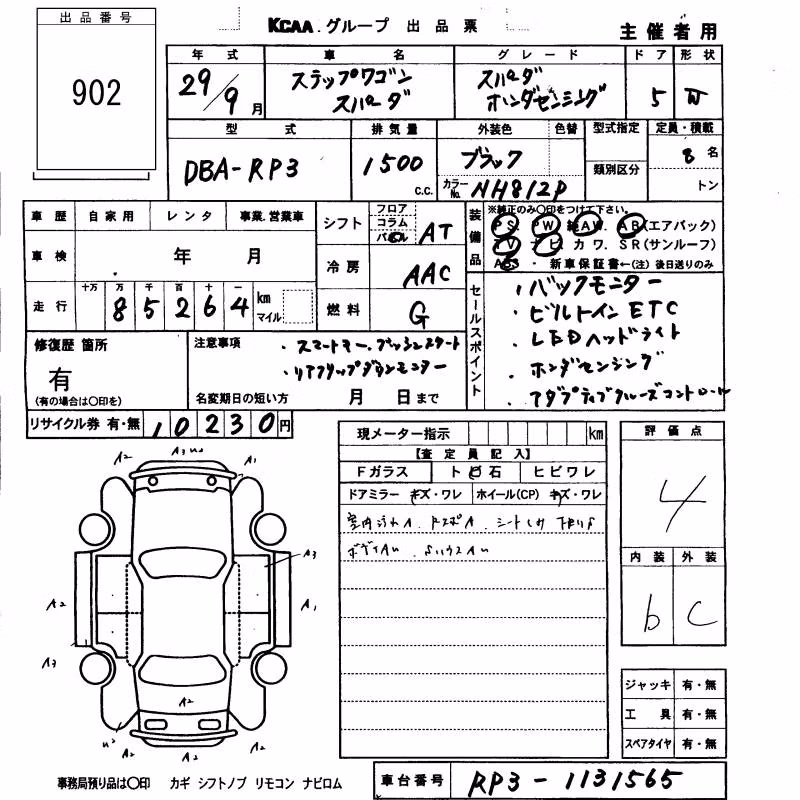 出品番号
902
KCAA.グループ 出品票
主催者用
年式 車名 グレード ドア 形状
29/9月 ステップワゴン スパーダ スパーダ ホンダセンシング 5 W
型式 排気量 外装色 色替 型式指定 定員・積載
DBA-RP3 1500 c.c. ブラック 類別区分 8名
カラーNo. NH812P トン
車歴 自家用 レンタ 事業.営業車
シフト フロア コラム AT
装備品 ※純正のみ〇印をつけて下さい。
PS PW AW. AB(エアバック)
TV ナビ カワ. SR(サンルーフ)
ABS ・ 新車保証書←(注) 後日送りのみ
車検 年 月
冷房 AAC
走行 十万 万 千 百 十 一
85264 km マイル
燃料 G
セールスポイント
・バックモニター
・ビルトインETC
・LEDヘッドライト
・ホンダセンシング
・アダプティブクルーズコントロール
修復歴 箇所
有
(有の場合は〇印を)
注意事項
・スマートキー.プッシュスタート
・リアフリップダウンモニター
名変期日の短い方 月 日まで
リサイクル券 有・無 10230円
現メーター指示 km
【査定員記入】
Fガラス トビ石 ヒビワレ
ドアミラー キズ・ワレ ホイール(CP) キズ・ワレ
評価点
4
内装 外装
b C
A2 A3 A1
A3
A2 A1
A3
A2
A2 A2 A2
ジャッキ 有・無
工具 有・無
スペアタイヤ 有・無
事務局預り品は〇印 カギ シフトノブ リモコン ナビロム
車台番号 RP3-1131565